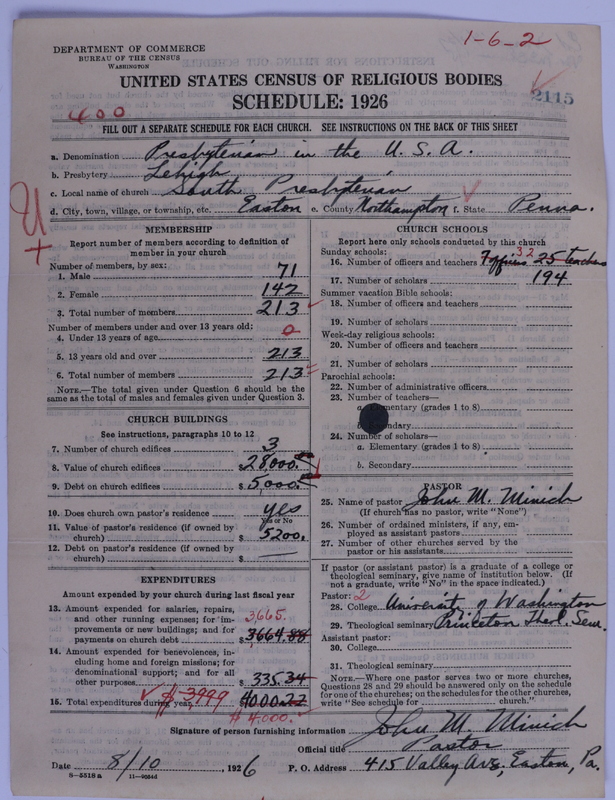 1-6-2
DEPARTMENT OF COMMERCE
BUREAU OF THE CENSUS
WASHINGTON
UNITED STATES CENSUS OF RELIGIOUS BODIES
SCHEDULE: 1926
2115
400
FILL OUT A SEPARATE SCHEDULE FOR EACH CHURCH. SEE INSTRUCTIONS ON THE BACK OF THIS SHEET
a. Denomination Presbyterian in the U.S.A.
b. Presbytery Lehigh
c. Local name of church South Presbyterian
d. City, town, village, or township, etc. Easton e. County Northampton f. State Penna.
MEMBERSHIP
Report number of members according to definition of
member in your church
Number of members, by sex:
1. Male 71
2. Female 142
3. Total number of members 213
Number of members under and over 13 years old:
4. Under 13 years of age 0
5. 13 years old and over 213
6. Total number of members 213
NOTE.—The total given under Question 6 should be the
same as the total of males and females given under Question 3.
CHURCH BUILDINGS
See instructions, paragraphs 10 to 12
7. Number of church edifices 3
8. Value of church edifices $28,000.
9. Debt on church edifices $5,000.
10. Does church own pastor's residence? yes
Yes or No
11. Value of pastor's residence (if owned by
church) $ 5200.
12. Debt on pastor's residence (if owned by
church) $ —
EXPENDITURES
Amount expended by your church during last fiscal year
13. Amount expended for salaries, repairs,
and other running expenses; for im-
provements or new buildings; and for
payments on church debt $3664.88
3665.
14. Amount expended for benevolences, in-
cluding home and foreign missions; for
denominational support; and for all
other purposes $ 335.34
15. Total expenditures during year $ 3999 4000.22
$ 4,000.
CHURCH SCHOOLS
Report here only schools conducted by this church
Sunday schools:
32
16. Number of officers and teachers 7 officers 25 teachers
17. Number of scholars 194
Summer vacation Bible schools:
18. Number of officers and teachers
19. Number of scholars
Week-day religious schools:
20. Number of officers and teachers
21. Number of scholars
Parochial schools:
22. Number of administrative officers
23. Number of teachers—
a. Elementary (grades 1 to 8)
b. Secondary
24. Number of scholars—
a. Elementary (grades 1 to 8)
b. Secondary
PASTOR
25. Name of pastor John M. Minich
(If church has no pastor, write "None")
26. Number of ordained ministers, if any, em-
ployed as assistant pastors
27. Number of other churches served by the
pastor or his assistants
If pastor (or assistant pastor) is a graduate of a college or
theological seminary, give name of institution below. (If
not a graduate, write "No" in the space indicated.)
Pastor: 2
28. College University of Washington
29. Theological seminary Princeton Theol. Sem.
Assistant pastor:
30. College
31. Theological seminary
NOTE.—Where one pastor serves two or more churches,
Questions 28 and 29 should be answered only on the schedule
for one of the churches; on the schedules for the other churches,
write "See schedule for church."
Signature of person furnishing information John M. Minich
Official title Pastor
Date 8/10, 1926 P. O. Address 415 Valley Ave, Easton, Pa.
S-5518 a